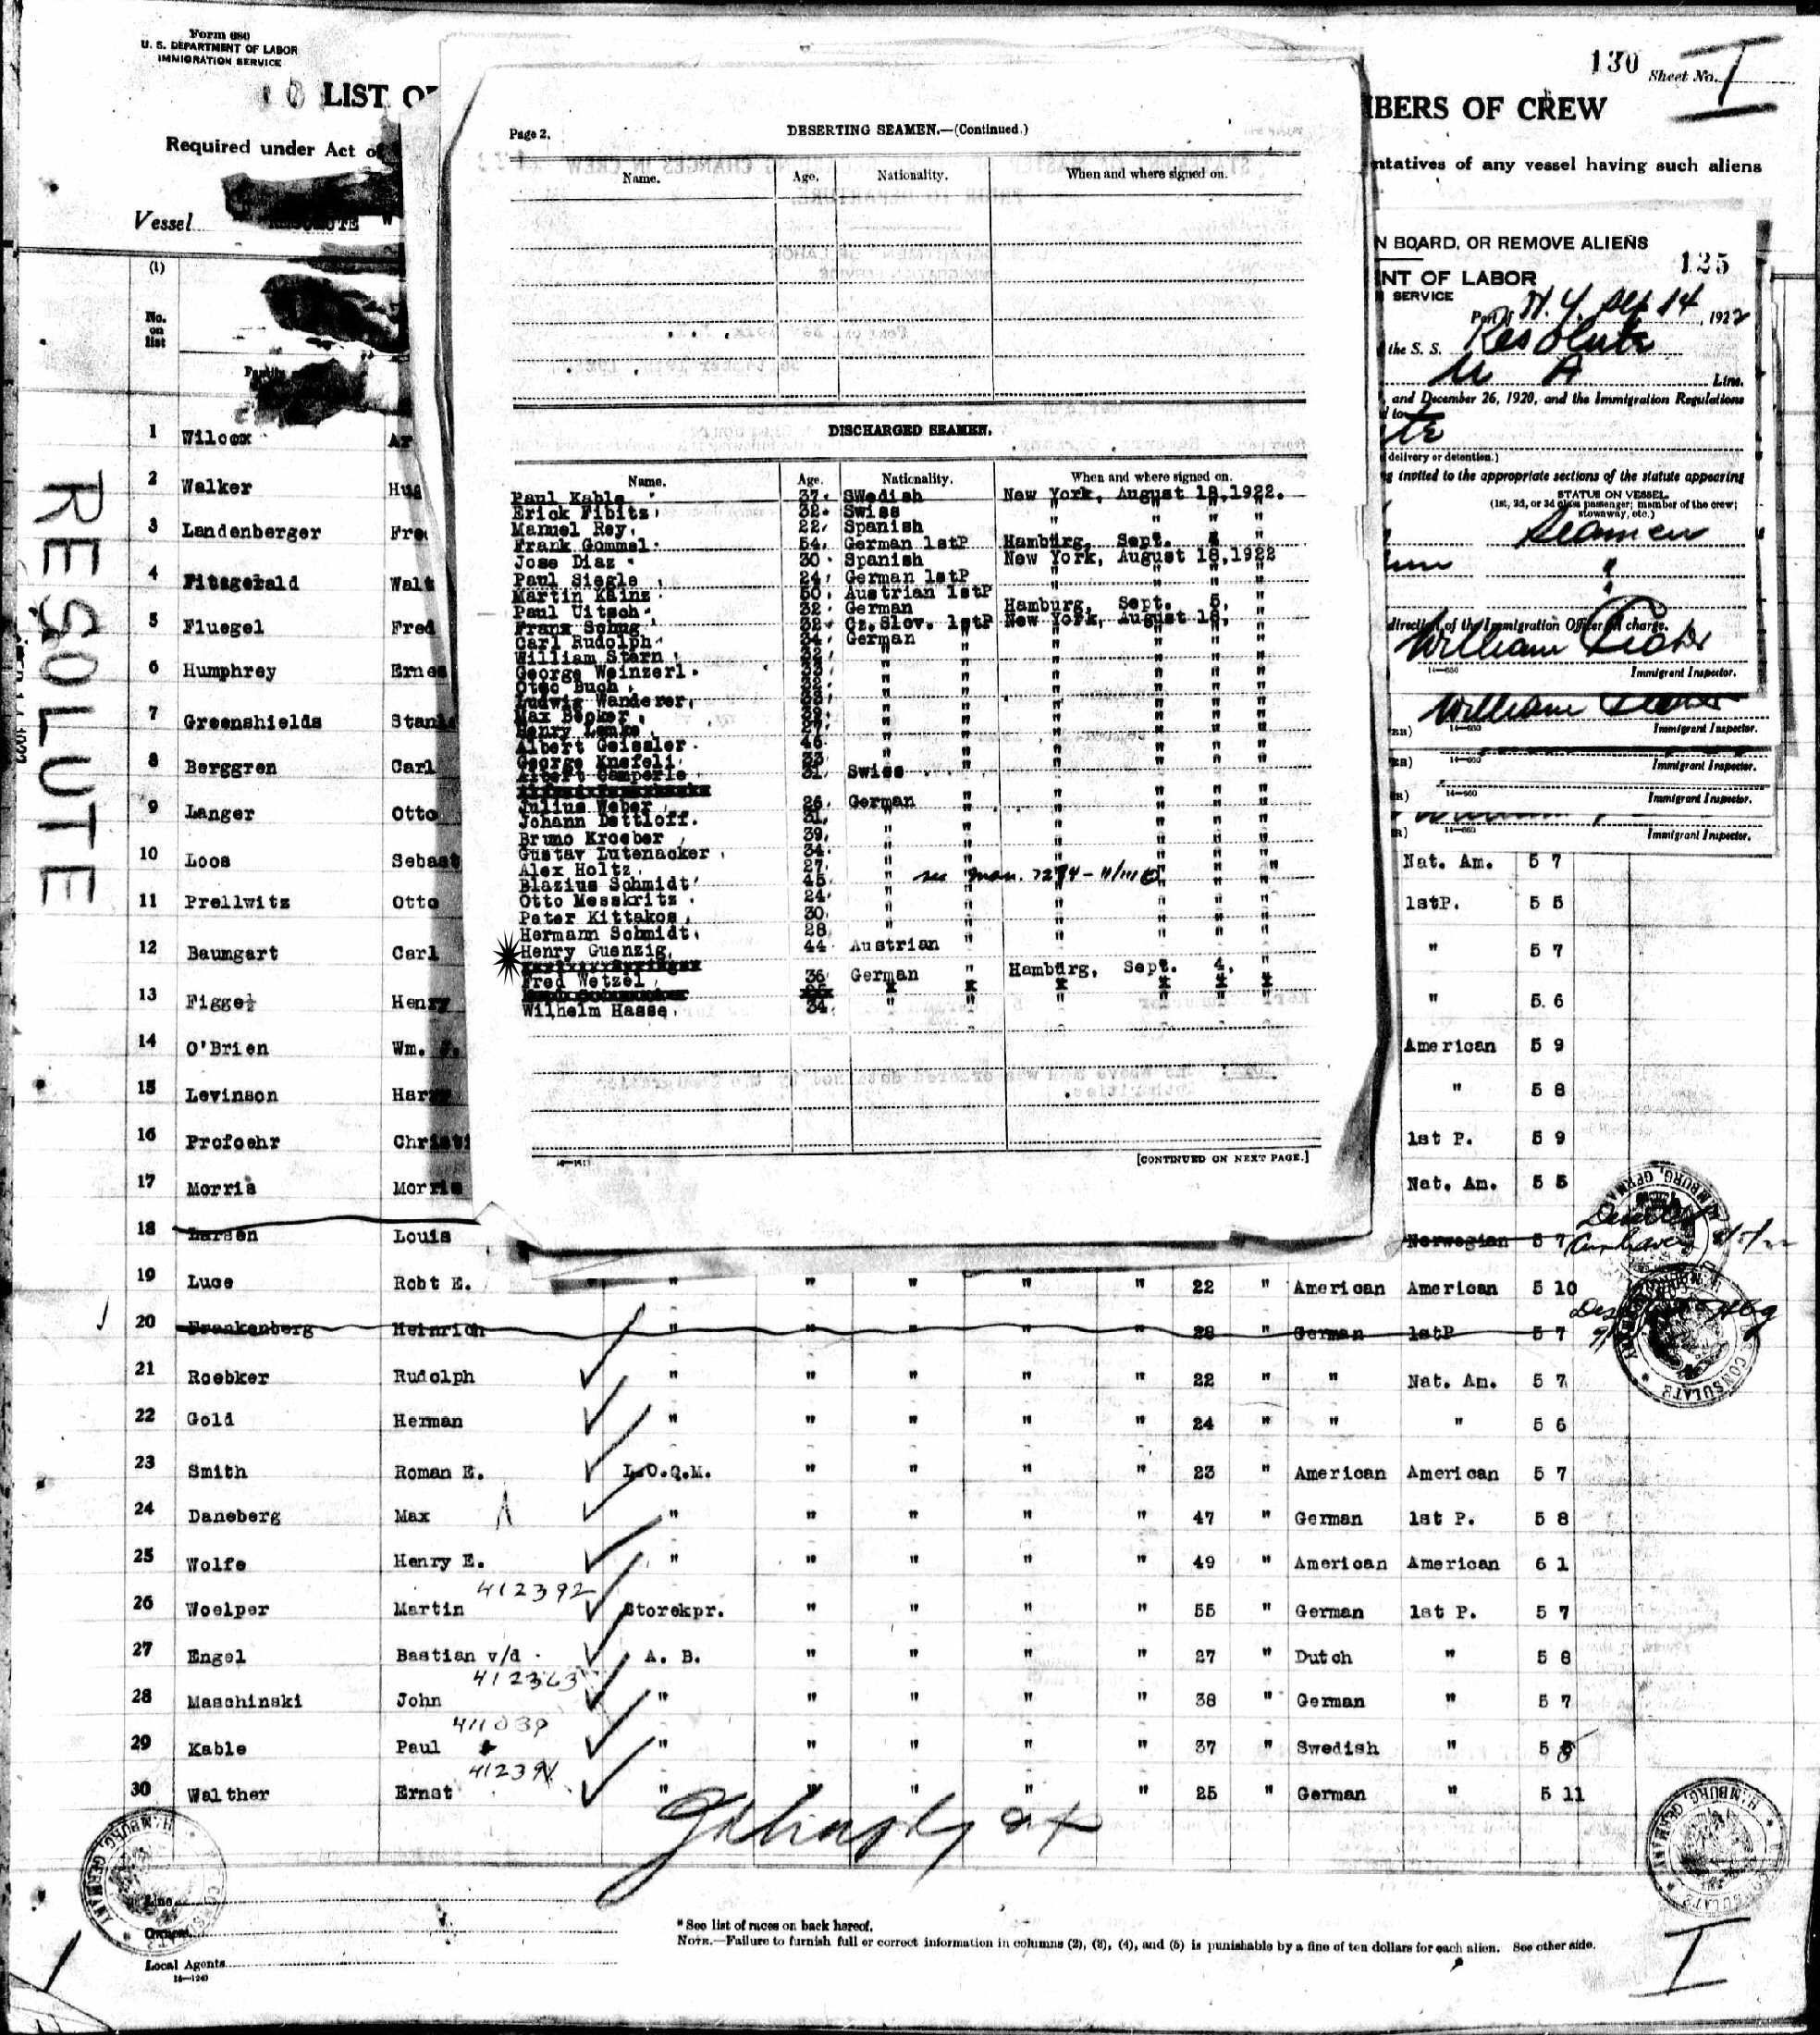 Form 680
U. S. DEPARTMENT OF LABOR
IMMIGRATION SERVICE
130 Sheet No. I
LIST OF
MBERS OF CREW
Required under Act of
ntatives of any vessel having such aliens
Vessel RESOLUTE
(1)
No. on list
RESOLUTE
Page 2.
DESERTING SEAMEN.—(Continued.)
Name. Age. Nationality. When and where signed on.
DISCHARGED SEAMEN.
Name. Age. Nationality. When and where signed on.
Paul Kable 37. SWedish New York, August 18, 1922.
Erick Fibitz 32. Swiss " " " "
Manuel Rey. 22. Spanish " " " "
Frank Gommel. 54. German 1stP Hamburg, Sept. "
Jose Diaz 30. Spanish New York, August 18, 1922
Paul Siegle 24. German 1stP " " " "
Martin Kainz. 50. Austrian 1stP " " " "
Paul Uitsch. 32. German Hamburg, Sept. 5, "
Franz Schug 32. Cz.Slov. 1stP New York, August 18, "
Carl Rudolph 34. German " " " " "
William Stern 32. " " " " " "
George Weinzerl. " " " " " "
Otto Buch " " " " " "
Ludwig Wanderer. " " " " " "
Max Becker " " " " " "
Henry Lemke " " " " " "
Albert Geissler. 46. " " " " " "
George Knefeli " " " " " "
Albert Camperle 31. Swiss " " " "
Julius Weber 26. German " " " " "
Johann Dettloff. 31. " " " " " "
Bruno Kroeber 39. " " " " " "
Gustav Lutenacker 34. " " " " " "
Alex Holtz. 27. " " " " " "
Blazius Schmidt 45. " " " " " "
Otto Messkritz. 24. " " " " " "
Peter Kittakos. 30. " " " " " "
Hermann Schmidt. 28 " " " " " "
Henry Guenzig. 44. Austrian " " " "
Fred Wetzel 36. German " Hamburg, Sept. 4, "
Wilhelm Hasse. 34. " " " " " "
[CONTINUED ON NEXT PAGE.]
N BOARD, OR REMOVE ALIENS
125
NT OF LABOR
SERVICE
Port of N. Y. Sep 14, 1922
the S. S. Resolute
U A Line.
and December 26, 1920, and the Immigration Regulations
d to
delivery or detention.)
g invited to the appropriate sections of the statute appearing
STATUS ON VESSEL
(1st, 2d, or 3d class passenger; member of the crew; stowaway, etc.)
Seamen
"
direction of the Immigration Officer in charge.
William
14—660 Immigrant Inspector.
William
14—660 Immigrant Inspector.
14—660 Immigrant Inspector.
14—660 Immigrant Inspector.
14—660 Immigrant Inspector.
1 Wilcox Ar
2 Walker Hug
3 Landenberger Fre
4 Fitzgerald Walt
5 Fluegel Fred
6 Humphrey Ernes
7 Greenshields Stanl
8 Berggren Carl
9 Langer Otto
10 Loos Sebast Nat. Am. 5 7
11 Prellwitz Otto 1stP. 5 5
12 Baumgart Carl " 5 7
13 Figge Henry " 5. 6
14 O'Brien Wm. American 5 9
15 Levinson Harry " 5 8
16 Profoehr Christi 1st P. 5 9
17 Morris Morris Nat. Am. 5 5
18 Larsen Louis Norwegian 5 7 Deserted Cuxhaven
19 Luce Robt E. " " " " " 22 " American American 5 10
20 Frankenberg Heinrich " " " " 28 " German 1stP 5 7
21 Roebker Rudolph " " " " 22 " " Nat. Am. 5 7
22 Gold Herman " " " " 24 " " " 5 6
23 Smith Roman E. L.O.Q.M. " " " 23 " American American 5 7
24 Daneberg Max " " " " 47 " German 1st P. 5 8
25 Wolfe Henry E. " " " " 49 " American American 6 1
412392
26 Woelper Martin Storekpr. " " " 55 " German 1st P. 5 7
27 Engel Bastian v/d A. B. " " " 27 " Dutch " 5 8
412363
28 Maschinski John " " " " 38 " German " 5 7
411039
29 Kable Paul " " " " 37 " Swedish " 5
30 Walther Ernst " " " " 25 " German " 5 11
Line
Owners
Local Agents
14—1240
* See list of races on back hereof.
NOTE.—Failure to furnish full or correct information in columns (2), (3), (4), and (5) is punishable by a fine of ten dollars for each alien. See other side.
I